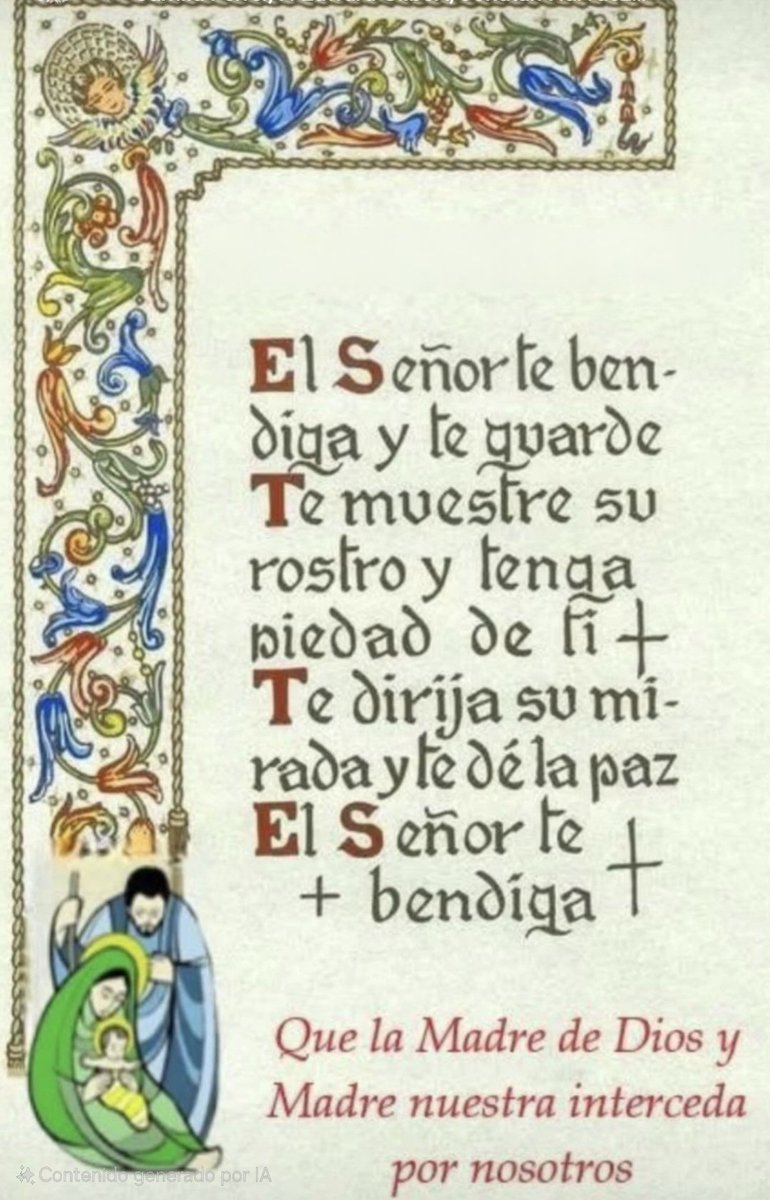 El Señor te ben-
diga y te guarde
Te muestre su
rostro y tenga
piedad de ti
Te dirija su mi-
rada y te dé la paz
El Señor te
bendiga
Que la Madre de Dios y
Madre nuestra interceda
por nosotros
Contenido generado por IA